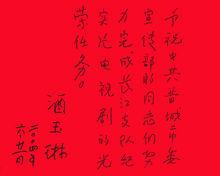 予祝中共晋城市委
宣传部的同志们努
力完成长江支队纪
实电视剧的光
荣任务。
酒玉琳
二〇〇四年
六月廿一日